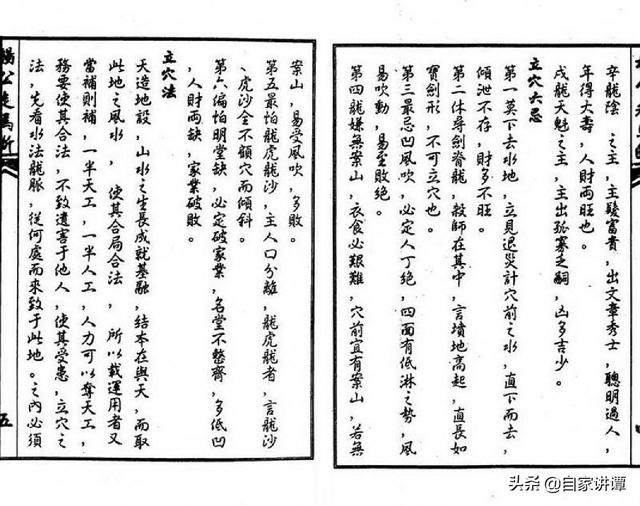 辛龍陰　之主，主發富貴，出文章秀士，聰明過人，
年得大壽，人財兩旺也。
戌龍天魁之主，主出孤寡乏嗣，凶多吉少。
立穴六忌
第一莫下去水地，立見退災計穴前之水，直下而去，
傾泄不存，財多不旺。
第二休尋劍脊龍，殺師在其中，言墳地高起，直長如
寶劍形，不可立穴也。
第三最忌凹風吹，必定人丁絶，四面有低淋之勢，風
易吹動，易至敗絕。
第四龍嫌無案山，衣食必艱難，穴前宜有案山，若無
案山，易受風吹，多敗。
第五最怕龍虎龍沙，主人口分離，龍虎龍者，言龍沙
、虎沙全不顧穴而傾斜。
第六偏怕明堂缺，必定破家業，名堂不整齊，多低凹
，人財兩缺，家業破敗。
立穴法
天造地設，山水之生長成就基融，結本在與天，而取
此地之風水　使其合局合法，　所以載運用者又
當補則補，一半天工，一半人工，人力可以奪天工，
務要使其合法，不致遺害于他人，使其受患，立穴之
法，先看水法龍脈，從何處而來致于此地。之內必須
五
头条 @自家讲谭